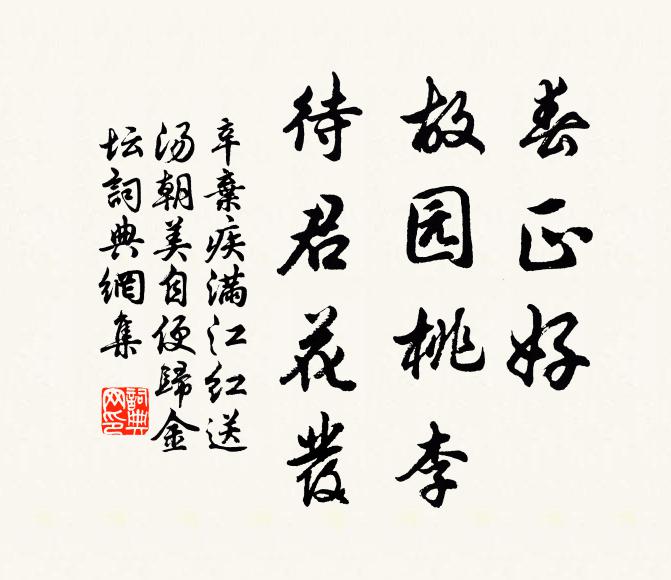 春正好
故园桃李
待君花發
辛棄疾满江红送
汤朝美自便歸金
坛詞典網集
詞典網印